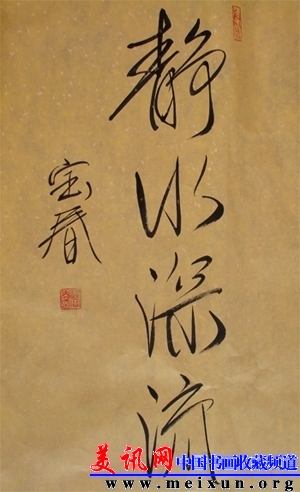 静水深流
宝春
美讯网 中国书画收藏频道
www.meixun.org